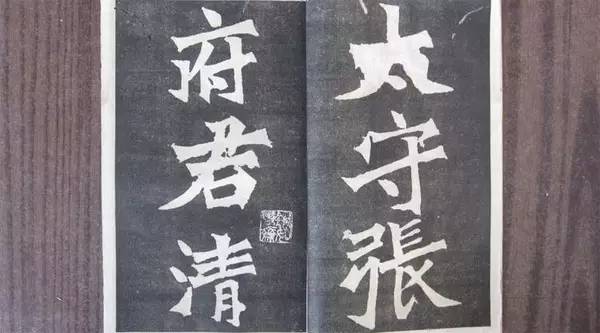 太守張
府君清